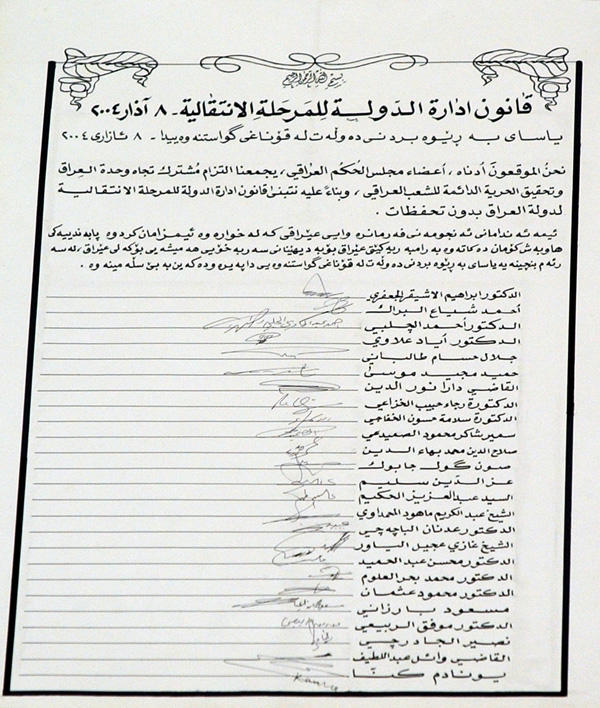 بسم الله الرحمن الرحيم
قانون ادارة الدولة للمرحلة الانتقالية - ٨ آذار ٢٠٠٤
ياساى به ڕێوه بردنى ده وڵه ت له قۆناغى گواستنه وه ييدا - ٨ ئازارى ٢٠٠٤
نحن الموقعون أدناه ، أعضاء مجلس الحكم العراقي ، يجمعنا التزام مشترك تجاه وحدة العراق
وتحقيق الحرية الدائمة للشعب العراقي ، وبناءً عليه نتبنى قانون ادارة الدولة للمرحلة الانتقالية
لدولة العراق بدون تحفظات .
ئيمه ئه ندامانى ئه نجومه نى فه رمانڕه وايى عێراقى كه له خواره وه ئيمزامان كردوه پابه ندييه كى
هاوبه ش كۆمان ده كاته وه به رامبه ر يه كێتى عێراق بۆ به ديهێنانى سه ربه خۆيى هه ميشه يى بۆ گه لى عێراق ، له سه
ر ئه م بنچينه يه ياساى به ڕێوه بردنى ده وڵه ت له قۆناغى گواستنه وه يى دا په يڕه وده كه ين به بێ سڵه مينه وه .
الدكتور ابراهيم الاشيقر الجعفري
أحمد شياع البراك
الدكتور أحمد الچلبي
الدكتور أياد علاوي
جلال حسام طالباني
حميد مجيد موسى
القاضي دارا نور الدين
الدكتورة رجاء حبيب الخزاعي
الدكتورة سلامة حسون الخفاجي
سمير شاكر محمود الصميدعي
صالح الدين محمد بهاء الدين
صون گول چابوك
عز الدين سليم
السيد عبدالعزيز الحكيم
الشيخ عبد الكريم ماهود المحمداوي
الدكتور عدنان الپاچه چي
الشيخ غازي عجيل الياور
الدكتور محسن عبد الحميد
الدكتور محمد بحر العلوم
الدكتور محمود عثمان
مسعود بارزاني
الدكتور موفق الربيعي
نصير الجادرچي
القاضي وائل عبد اللطيف
يونادم كنّا